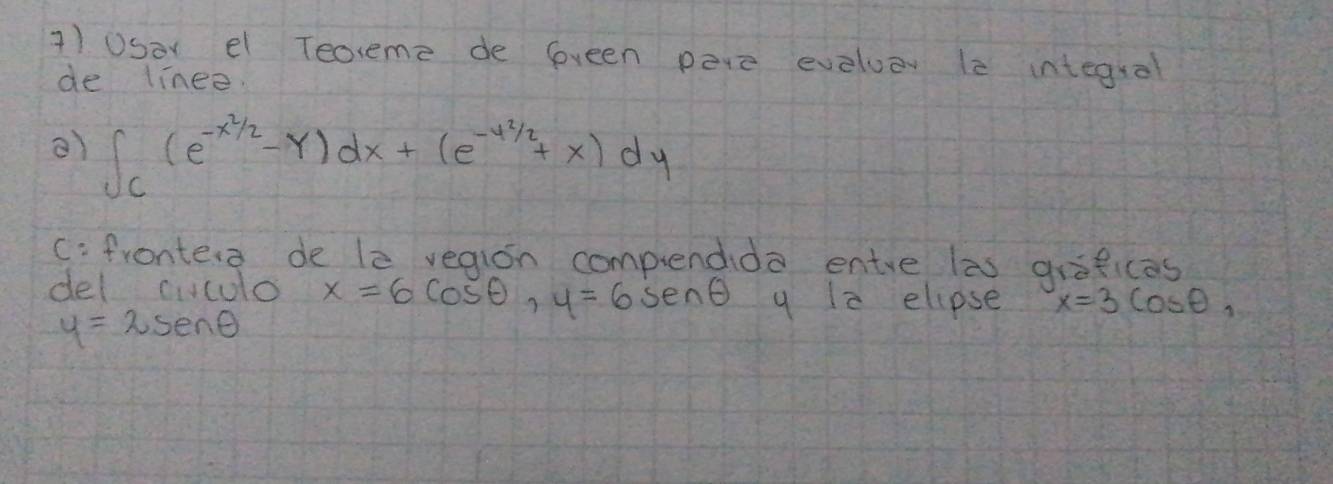 7) Usar el Teorema de Green para evaluar la integral
de línea.
a) ∫_C (e^{-x²/2} - Y) dx + (e^{-y²/2} + x) dy
C: frontera de la región comprendida entre las gráficas
del círculo x = 6 Cosθ, y = 6 senθ y la elipse x = 3 Cosθ,
y = 2 senθ